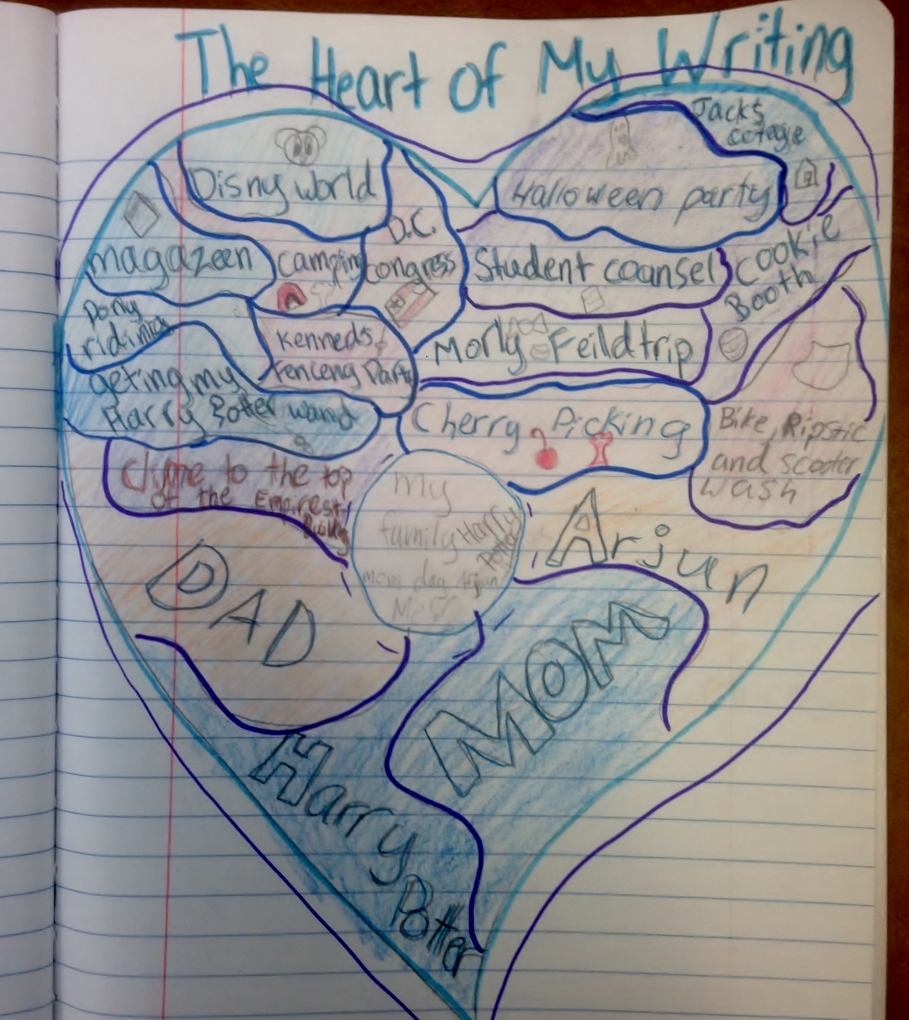 The Heart of My Writing
Jack's
cotege
Disny world
Halloween party
D.C.
congress
magazeen
camping
Student counsel
Cookie
Booth
Pony
riding
Kenneds
fenceng Party
Morly Feildtrip
geting my
Harry Potter wand
Cherry Picking
Bike, Ripstic
and scooter
wash
Clyme to the top
of the Empirest
My
family Harry
Potter
mom dad Arjun
Arjun
DAD
MOM
Harry
Potter